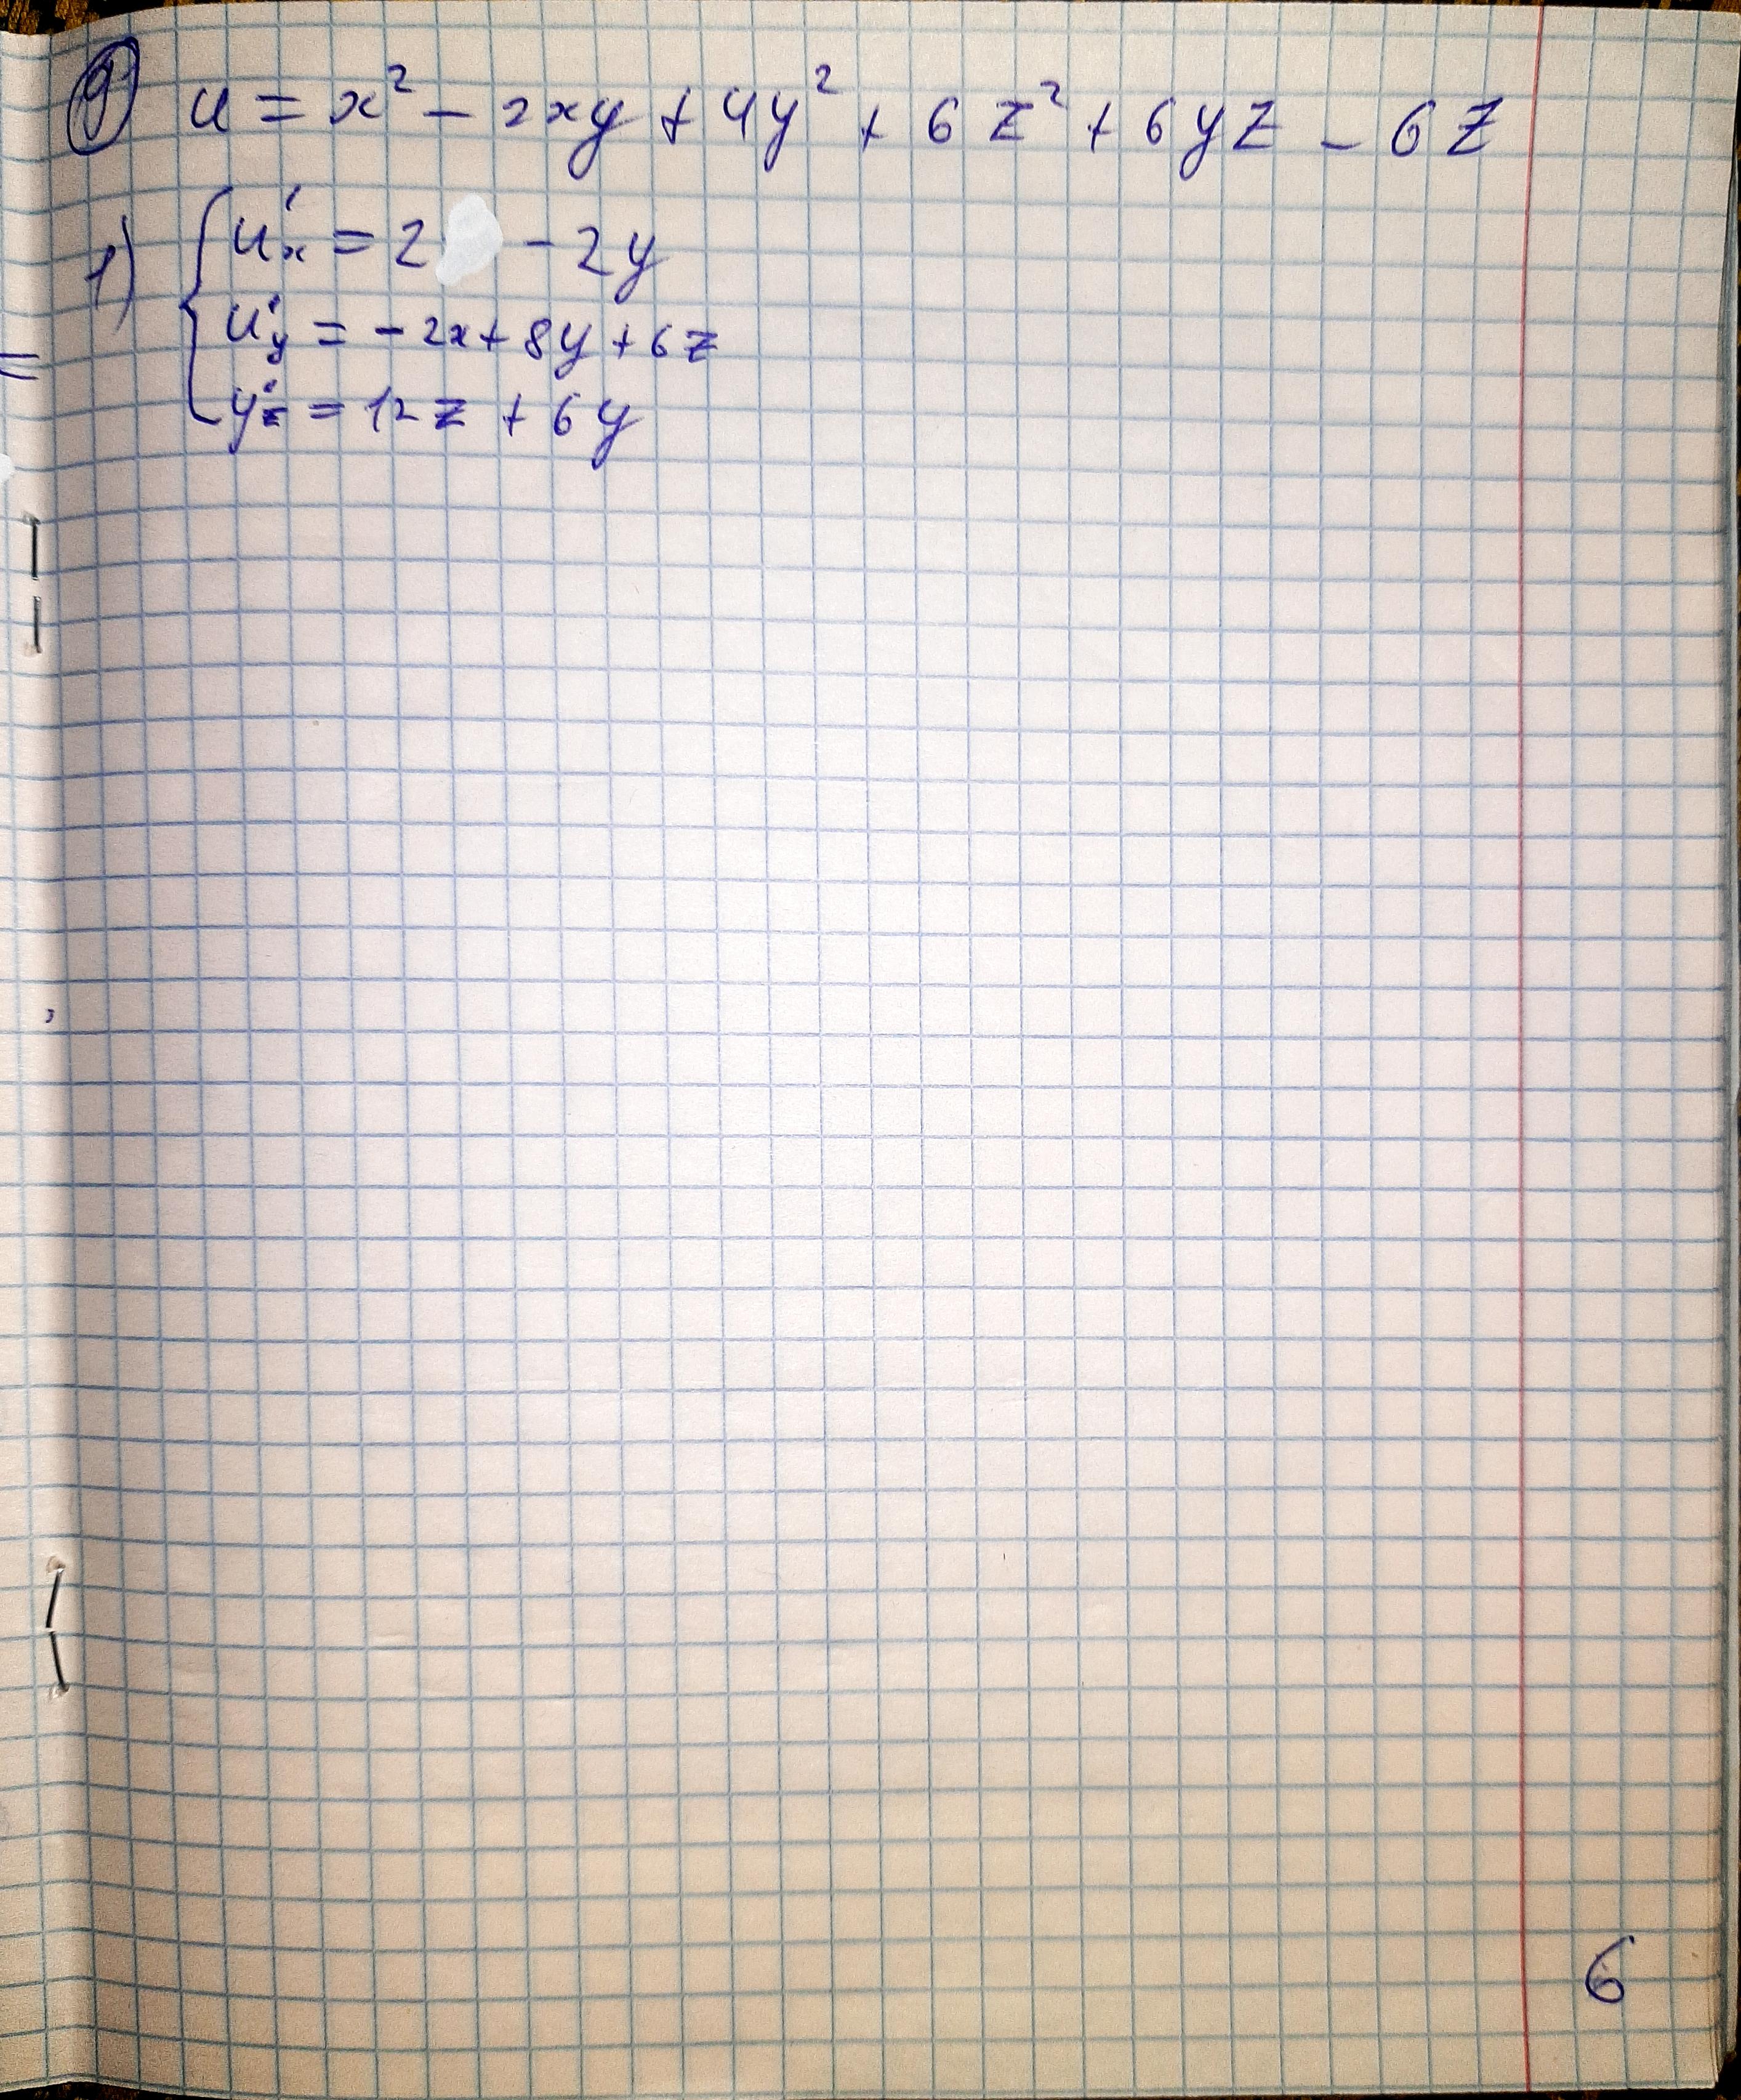 9 u = x² - 2xy + 4y² + 6z² + 6yz - 6z
1) { u'x = 2 - 2y
u'y = -2x + 8y + 6z
y'z = 12z + 6y
=
,
6